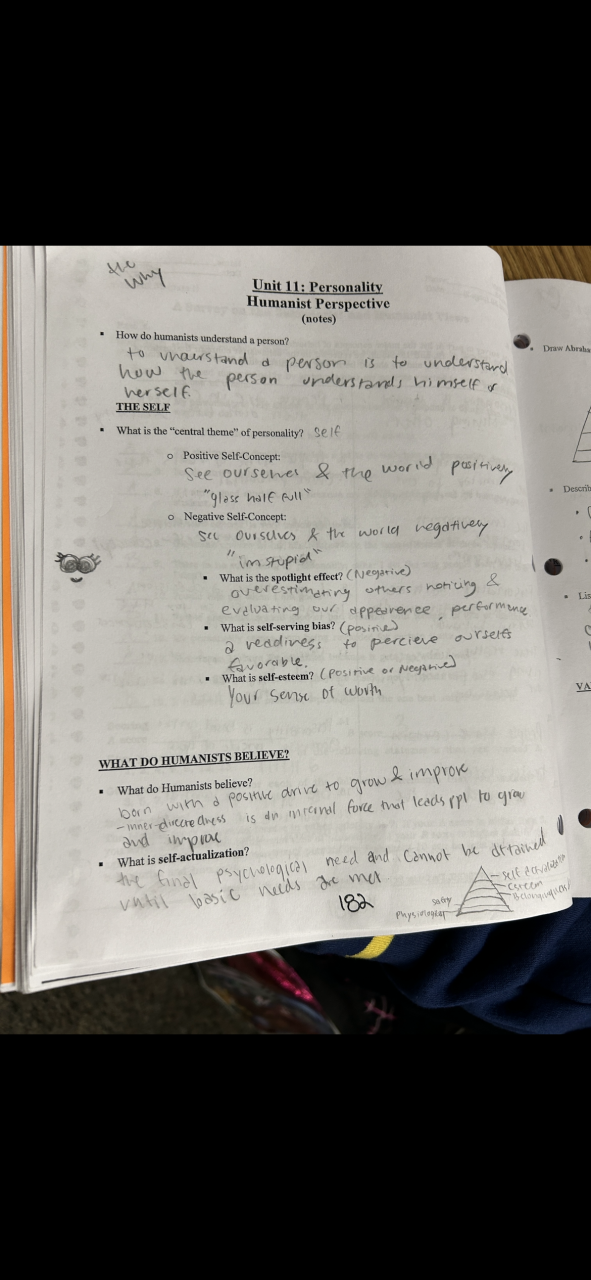 the
why
Unit 11: Personality
Humanist Perspective
(notes)
▪ How do humanists understand a person?
to understand a person is to understand
how the person understands himself or
herself.
THE SELF
▪ What is the “central theme” of personality? Self
o Positive Self-Concept:
See ourselves & the world positively
"glass half full"
o Negative Self-Concept:
see ourselves & the world negatively
"im stupid"
▪ What is the spotlight effect? (Negative)
overestimating others noticing &
evaluating our appearence, performance
▪ What is self-serving bias? (positive)
a readiness to percieve ourselfs
favorable.
▪ What is self-esteem? (Positive or Negative)
Your sense of worth
WHAT DO HUMANISTS BELIEVE?
▪ What do Humanists believe?
born with a positive drive to grow & improve
-inner-directedness is an internal force that leads ppl to grow
and improve
▪ What is self-actualization?
the final psychological need and cannot be attained
until basic needs are met
182
self actualization
esteem
Belongingness
safety
Physiological
▪ Draw Abraha
▪ Describ
▪ Lis
VA